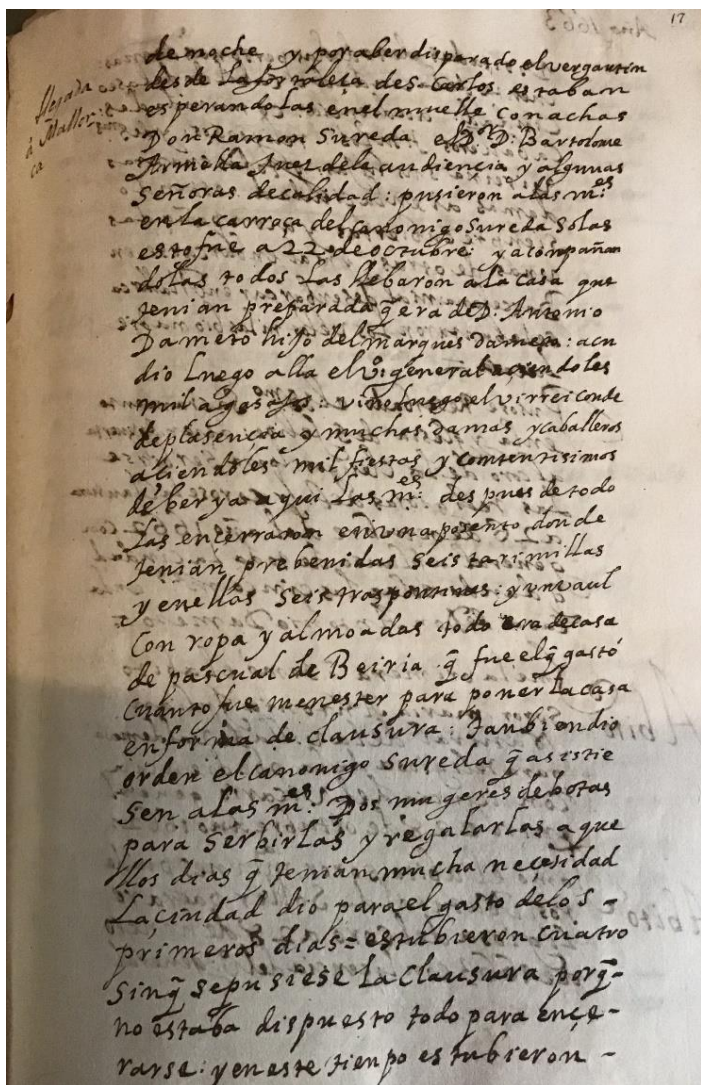 17
llegada
á Mallor
ca
de noche y por aber disparado el vergantin
desde la fortaleta de S. Carlos estaban
esperandolas en el muelle con achas
Don Ramon Sureda el D.or D: Bartolome
Juez dela audiencia y algunas
Señoras de calidad: pusieron a las m.es
en la carroça del canonigo Sureda Solas
esto fue a 22 de octubre: y acompañan
dolas todos las llebaron a la casa que
tenian preparada q̃ era de D: Antonio
Dameto hijo del marques Dameto: acu
dio luego alla el v.o general aciendoles
mil agasajos: vino luego el virrei conde
de plasencia y muchas damas y caballeros
aciendoles mil fiestas y contentisimos
de ber ya aqui las m.es despues de todo
las encerraron en un aposento donde
tenian prebenidas seis tarimillas
y en ellas seis trasportinas: y un vaul
con ropa y almoadas todo era de casa
de pascual de Beiria q̃ fue el q̃ gastó
cuanto fue menester para poner la casa
en forma de clausura: tanbien dio
orden el canonigo Sureda q̃ asistie
sen a las m.es Dos mugeres debotas
para serbirlas y regalarlas aque
llos dias q̃ tenian mucha neçesidad
La çiudad dio para el gasto delos -
primeros dias = estubieron cuatro
sin q̃ se pusiese la clausura porq̃ -
no estaba dispuesto todo para ençe -
rarse: y en este tiempo estubieron -